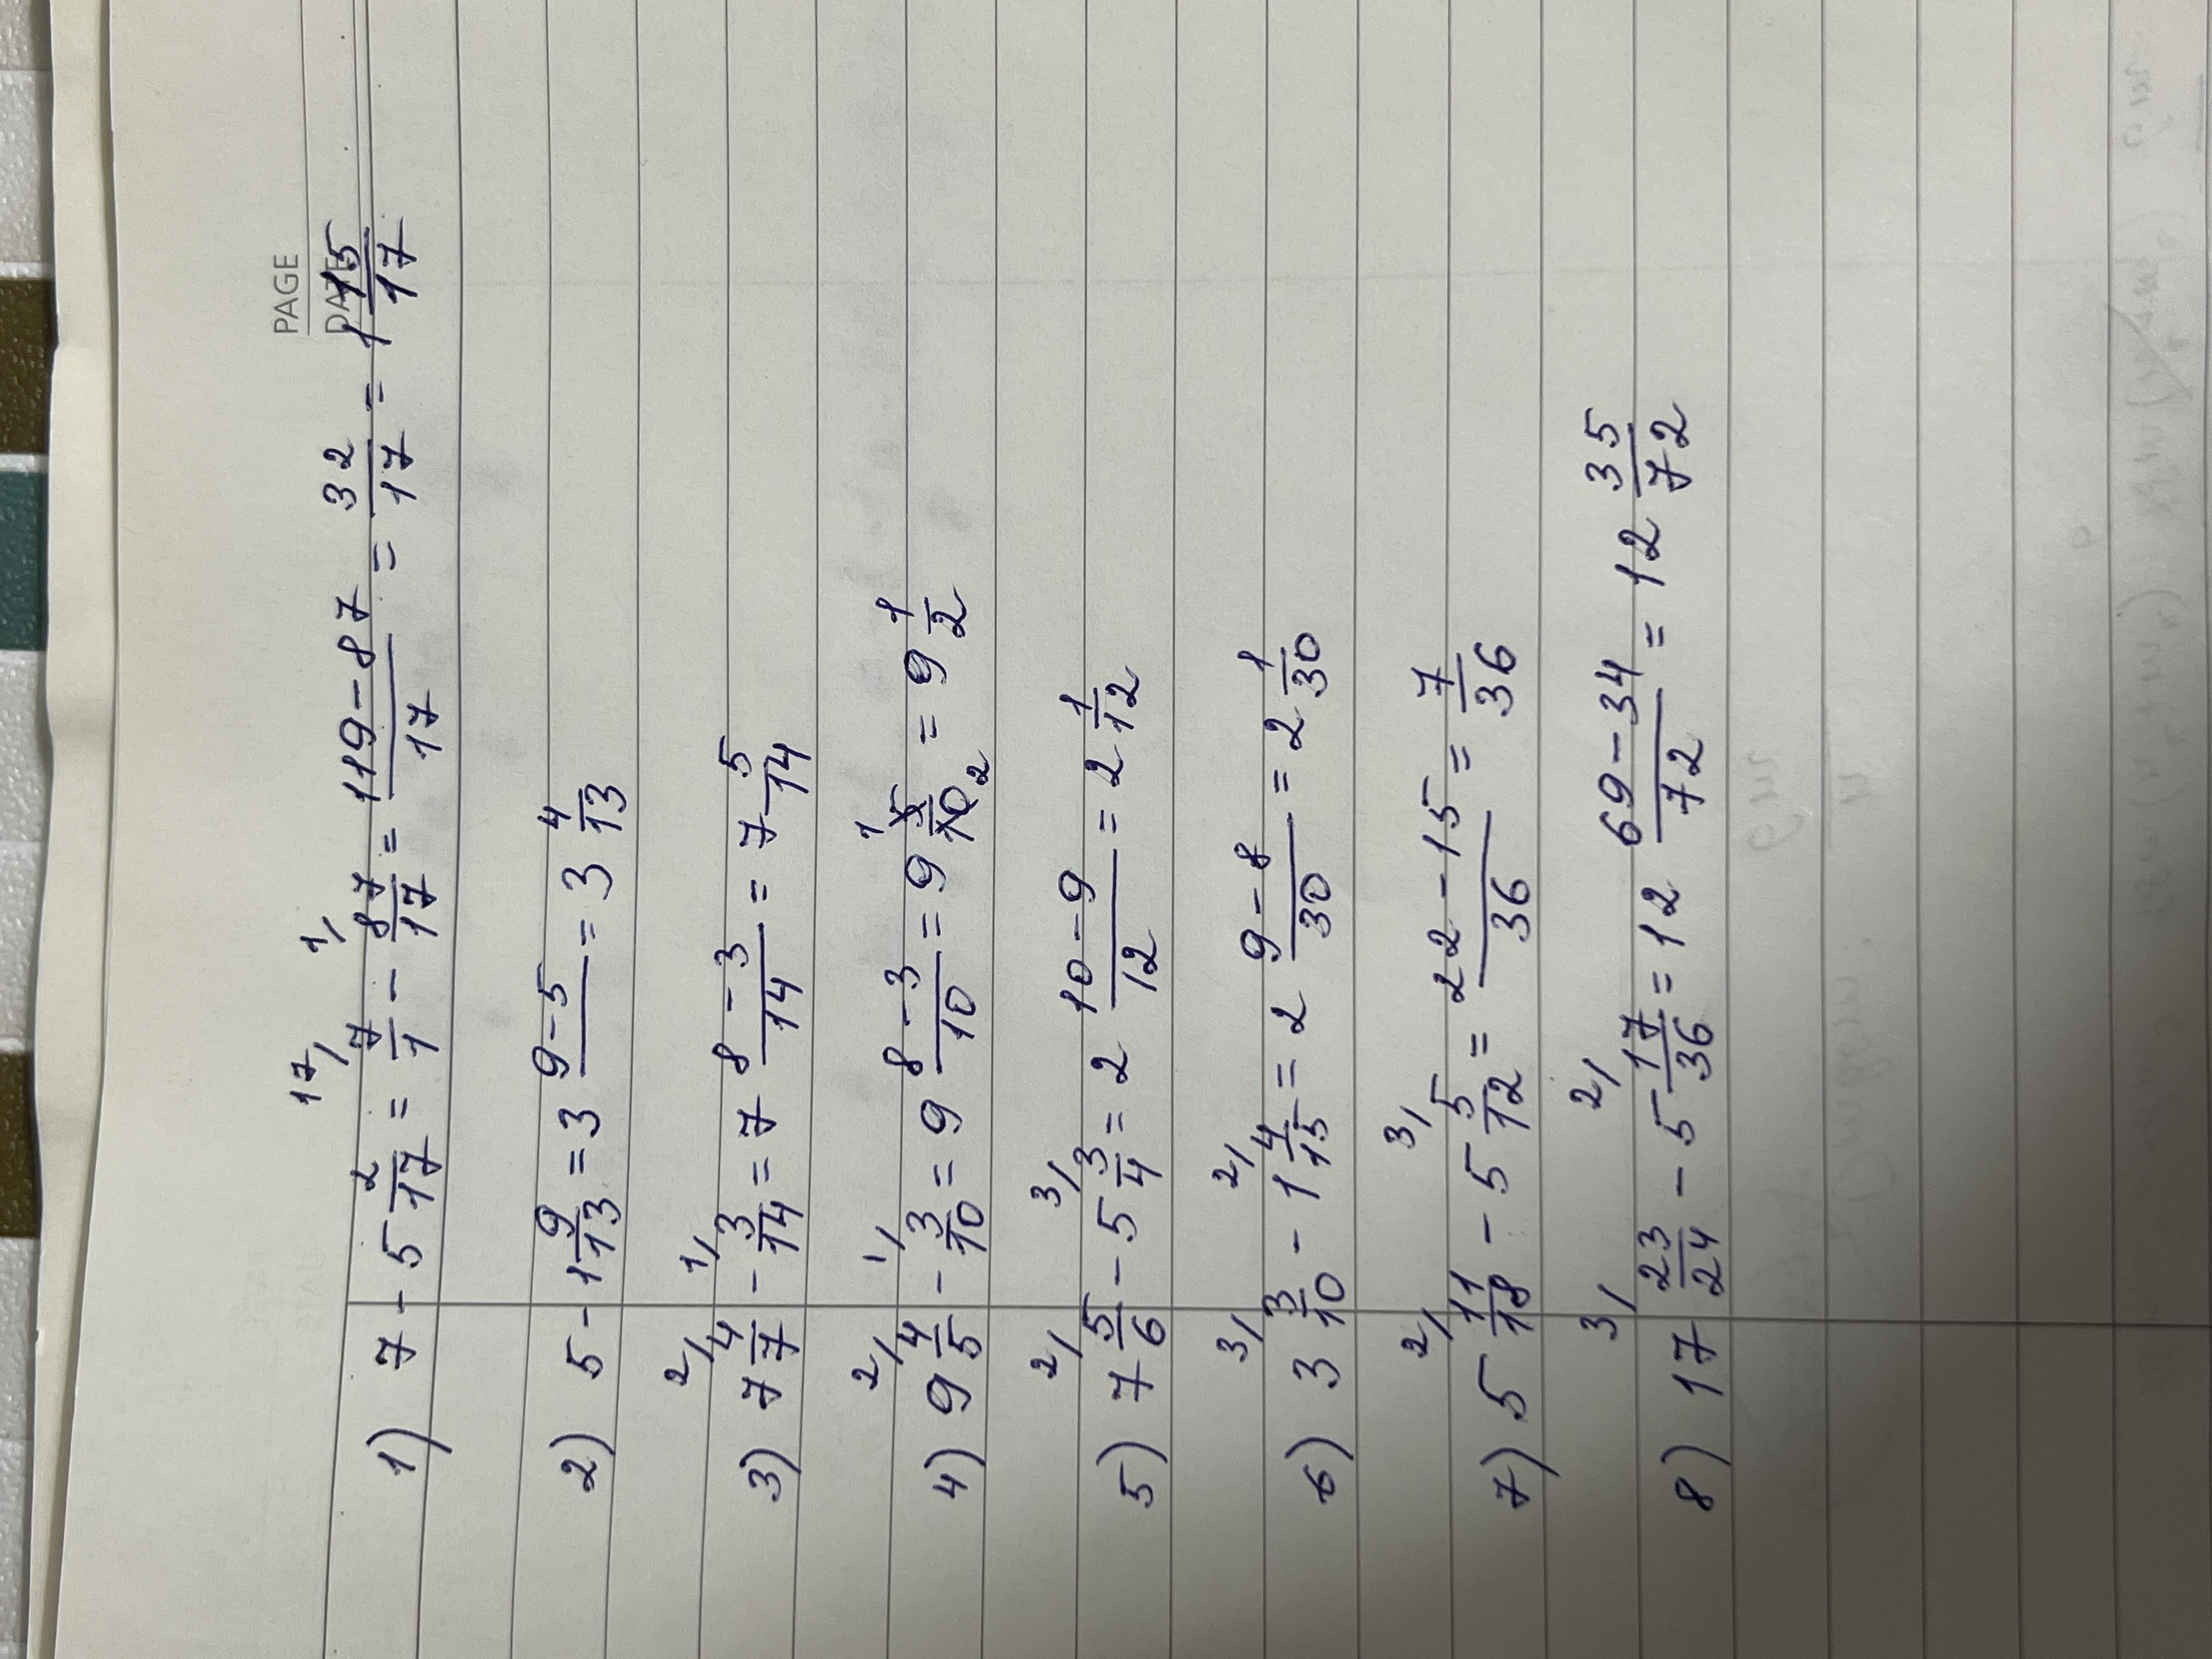 PAGE
DATE
1) 7 - 5 2/17 = 17/ 7/1 - 1/ 87/17 = (119-87)/17 = 32/17 = 1 15/17
2) 5 - 1 9/13 = 3 (9-5)/ = 3 4/13
3) 7 2/ 4/7 - 1/ 3/14 = 7 (8-3)/14 = 7 5/14
4) 9 2/ 4/5 - 1/ 3/10 = 9 (8-3)/10 = 9 1 5/10 2 = 9 1/2
5) 7 2/ 5/6 - 5 3/ 3/4 = 2 (10-9)/12 = 2 1/12
6) 3 3/ 3/10 - 1 2/ 4/15 = 2 (9-8)/30 = 2 1/30
7) 5 2/ 11/18 - 5 3/ 5/12 = (22-15)/36 = 7/36
8) 17 3/ 23/24 - 5 2/ 17/36 = 12 (69-34)/72 = 12 35/72